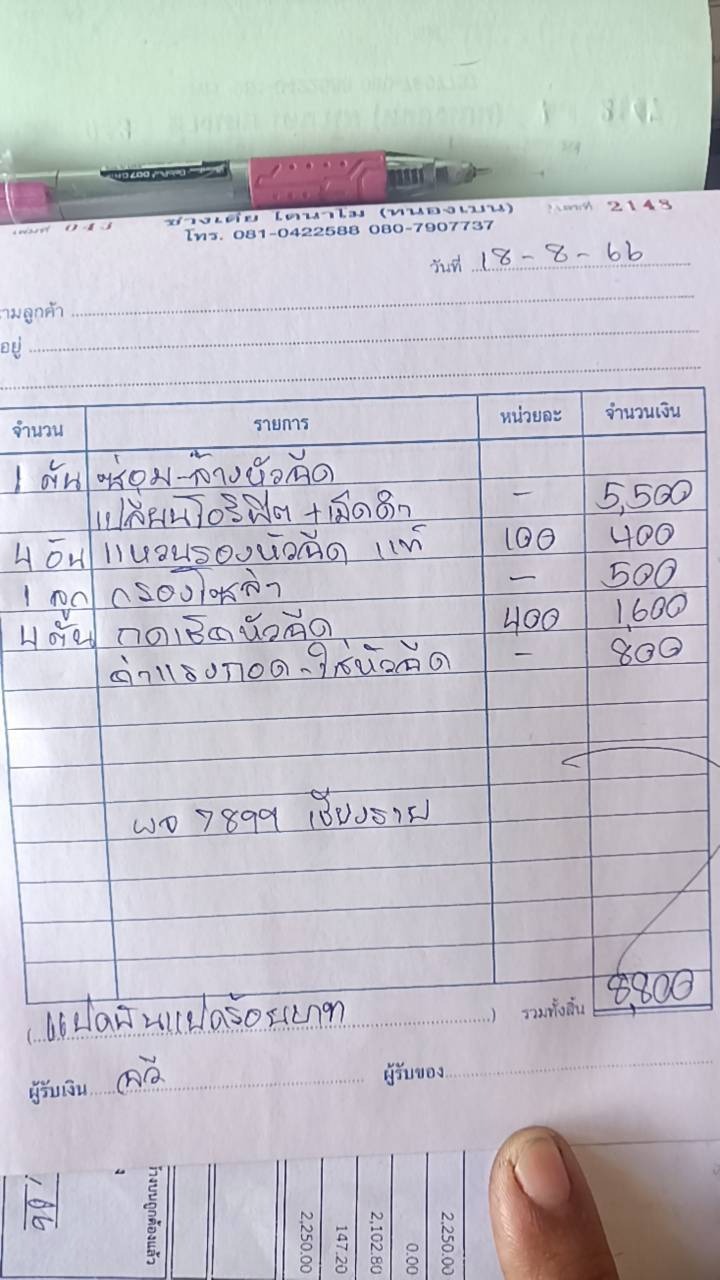 เล่มที่ 043 ช่างเตี้ย ไดนาโม (หนองเบน) เลขที่ 2148
โทร. 081-0422588 080-7907737
วันที่ 18-8-66
นามลูกค้า
อยู่
จำนวน รายการ หน่วยละ จำนวนเงิน
1 ตัน ซ่อม-ล้างหัวฉีด
เปลี่ยนโอริฟิต + เม็ดดำ - 5,500
4 อัน แหวนรองหัวฉีด แท้ 100 400
1 ลูก กรองโซล่า - 500
4 ตัน กดเช็ดหัวฉีด 400 1,600
ค่าแรงถอด-ใส่หัวฉีด - 800
ผจ 7899 เชียงราย
(แปดพันแปดร้อยบาท) รวมทั้งสิ้น 8,800
ผู้รับเงิน ผู้รับของ
ข้างบนถูกต้องแล้ว
2,250.00
147.20
2,102.80
0.00
2,250.00